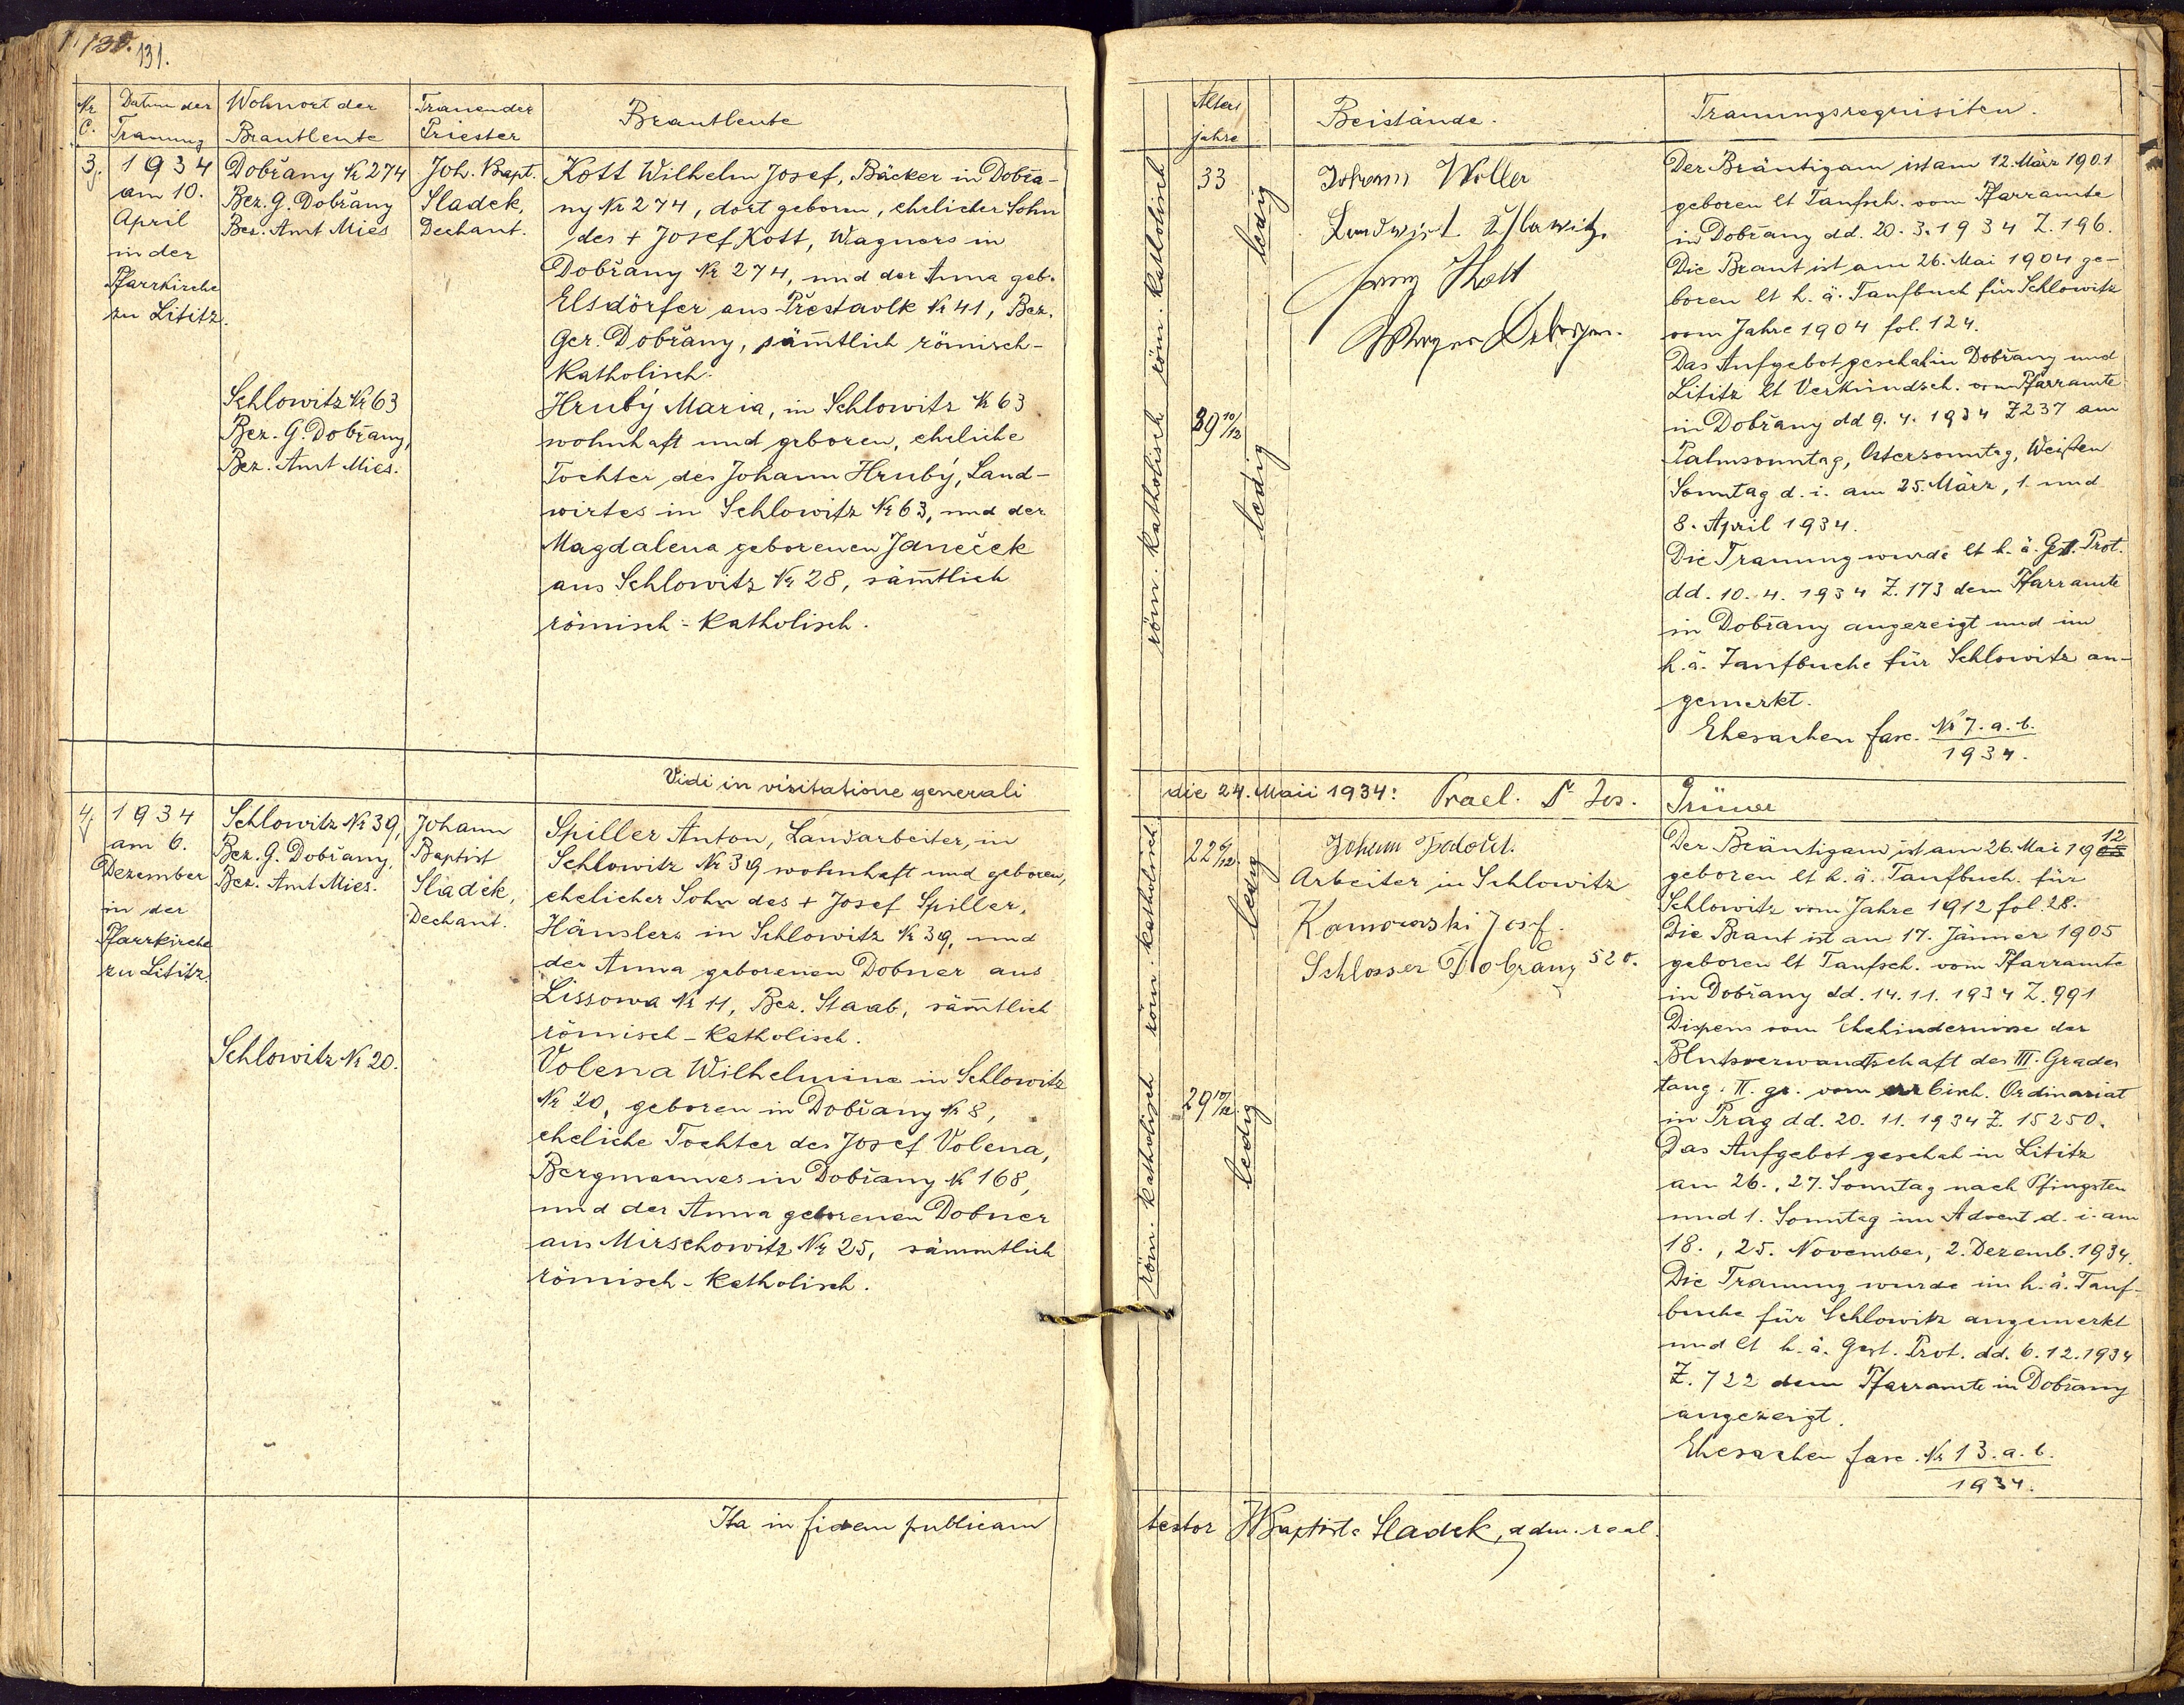 131.
Nr
C.
Datum der
Trauung
Wohnort der
Brautleute
Trauender
Priester
Brautleute
3.
1934
am 10.
April
in der
Pfarrkirche
zu Lititz.
Dobřany Nr 274
Bez. G. Dobřany
Bez. Amt Mies
Schlowitz Nr 63
Bez. G. Dobřany,
Bez. Amt Mies.
Joh. Bapt.
Sladek,
Dechant.
Kott Wilhelm Josef, Bäcker in Dobřa-
ny Nr 274, dort geboren, ehelicher Sohn
des + Josef Kott, Wagners in
Dobřany Nr 274, und der Anna geb.
Elsdörfer aus Přestavlk Nr 41, Bez.
Ger. Dobřany, säm̄tlich römisch-
katholisch.
Hrubý Maria, in Schlowitz Nr 63
wohnhaft und geboren, eheliche
Tochter des Johann Hrubý, Land-
wirtes in Schlowitz Nr 63, und der
Magdalena geborenen Janeček
aus Schlowitz Nr 28, säm̄tlich
römisch-katholisch.
Vidi in visitatione generali
4.
1934
am 6.
Dezember
in der
Pfarrkirche
zu Lititz.
Schlowitz Nr 39,
Bez. G. Dobřany,
Bez. Amt Mies.
Schlowitz Nr 20.
Johann
Baptist
Sladek,
Dechant.
Spiller Anton, Landarbeiter, in
Schlowitz Nr 39 wohnhaft und geboren,
ehelicher Sohn des + Josef Spiller,
Häuslers in Schlowitz Nr 39, und
der Anna geborenen Dobner aus
Lissowa Nr 11, Bez. Staab, säm̄tlich
römisch-katholisch.
Volena Wilhelmine in Schlowitz
Nr 20, geboren in Dobřany Nr 8,
eheliche Tochter des Josef Volena,
Bergmannes in Dobřany Nr 168,
und der Anna geborenen Dobner
aus Mirschowitz Nr 25, sämmtlich
römisch-katholisch.
Ita in fidem publicam
Alters
jahre
Beistände.
Trauungsrequisiten.
röm. katholisch
33
ledig
röm. katholisch
29 10/12
ledig
Johann Woller
Landwirt
Kott
Der Bräutigam ist am 12. März 1901
geboren lt Taufsch. vom Pfarramte
in Dobřany dd. 20. 3. 1934 Z. 196.
Die Braut ist am 26. Mai 1904 ge-
boren lt h. ä. Taufbuch für Schlowitz
vom Jahre 1904 fol. 124.
Das Aufgebot geschah in Dobřany und
Lititz lt Verkündsch. vom Pfarramte
in Dobřany dd 9. 4. 1934 Z 237 am
Palmsonntag, Ostersonntag, Weißen
Sonntag d. i. am 25. März, 1. und
8. April 1934.
Die Trauung wurde lt h. ä. Gest. Prot.
dd. 10. 4. 1934 Z. 173 dem Pfarramte
in Dobřany angezeigt und im
h. ä. Taufbuche für Schlowitz an-
gemerkt.
Ehesachen fasc. Nr 7. a. b.
1934.
die 24. Maii 1934: Prael. Dr Jos. Grüner
röm. katholisch
22 6/12
ledig
röm. katholisch
29 10/12
ledig
Johann
Arbeiter in Schlowitz
Kamowski Josef.
Schlosser Dobřany 520.
Der Bräutigam ist am 26. Mai 1912
geboren lt h. ä. Taufbuch. für
Schlowitz vom Jahre 1912 fol. 28.
Die Braut ist am 17. Jänner 1905
geboren lt Taufsch. vom Pfarramte
in Dobřany dd. 14. 11. 1934 Z. 991
Dispens vom Ehehindernisse der
Blutsverwandtschaft des III. Grades
tang. II. gr. vom erzbisch. Ordinariat
in Prag dd. 20. 11. 1934 Z. 15250.
Das Aufgebot geschah in Lititz
am 26., 27. Sonntag nach Pfingsten
und 1. Sonntag im Advent d. i. am
18., 25. November, 2. Dezemb. 1934.
Die Trauung wurde im h. ä. Tauf-
buche für Schlowitz angemerkt
und lt h. ä. Gest. Prot. dd. 6. 12. 1934
Z. 722 dem Pfarramte in Dobřany
angezeigt.
Ehesachen fasc. Nr 13. a. b.
1934.
testor J Baptista Sladek, adm. real.